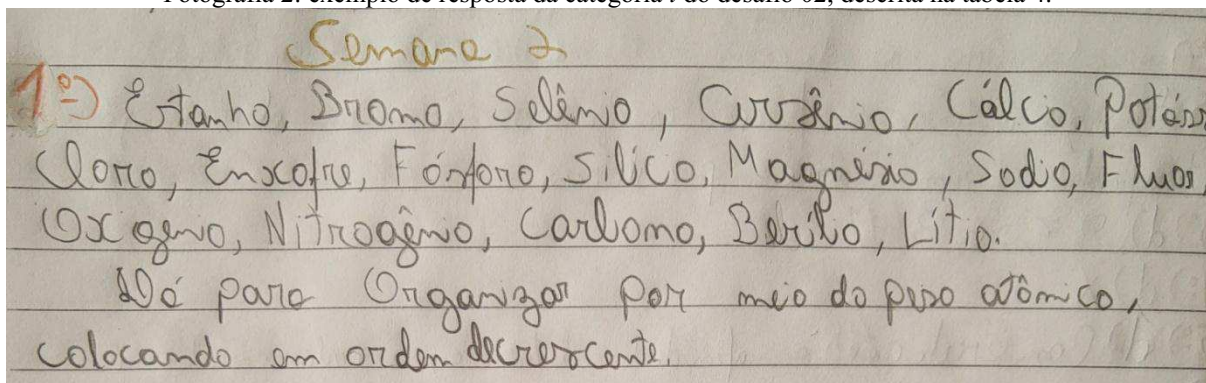 Fotografia 2: exemplo de resposta da categoria i do desafio 02, descrita na tabela 4.
Semana 2
1º) Estanho, Bromo, Selênio, Arsênio, Cálcio, Potáss
Cloro, Enxofre, Fósforo, Silíco, Magnésio, Sodio, Fluor,
Oxogeno, Nitrogênio, Carbomo, Berílio, Lítio.
Dá para Organizar por meio do peso atômico,
colocando em ordem decrescente.